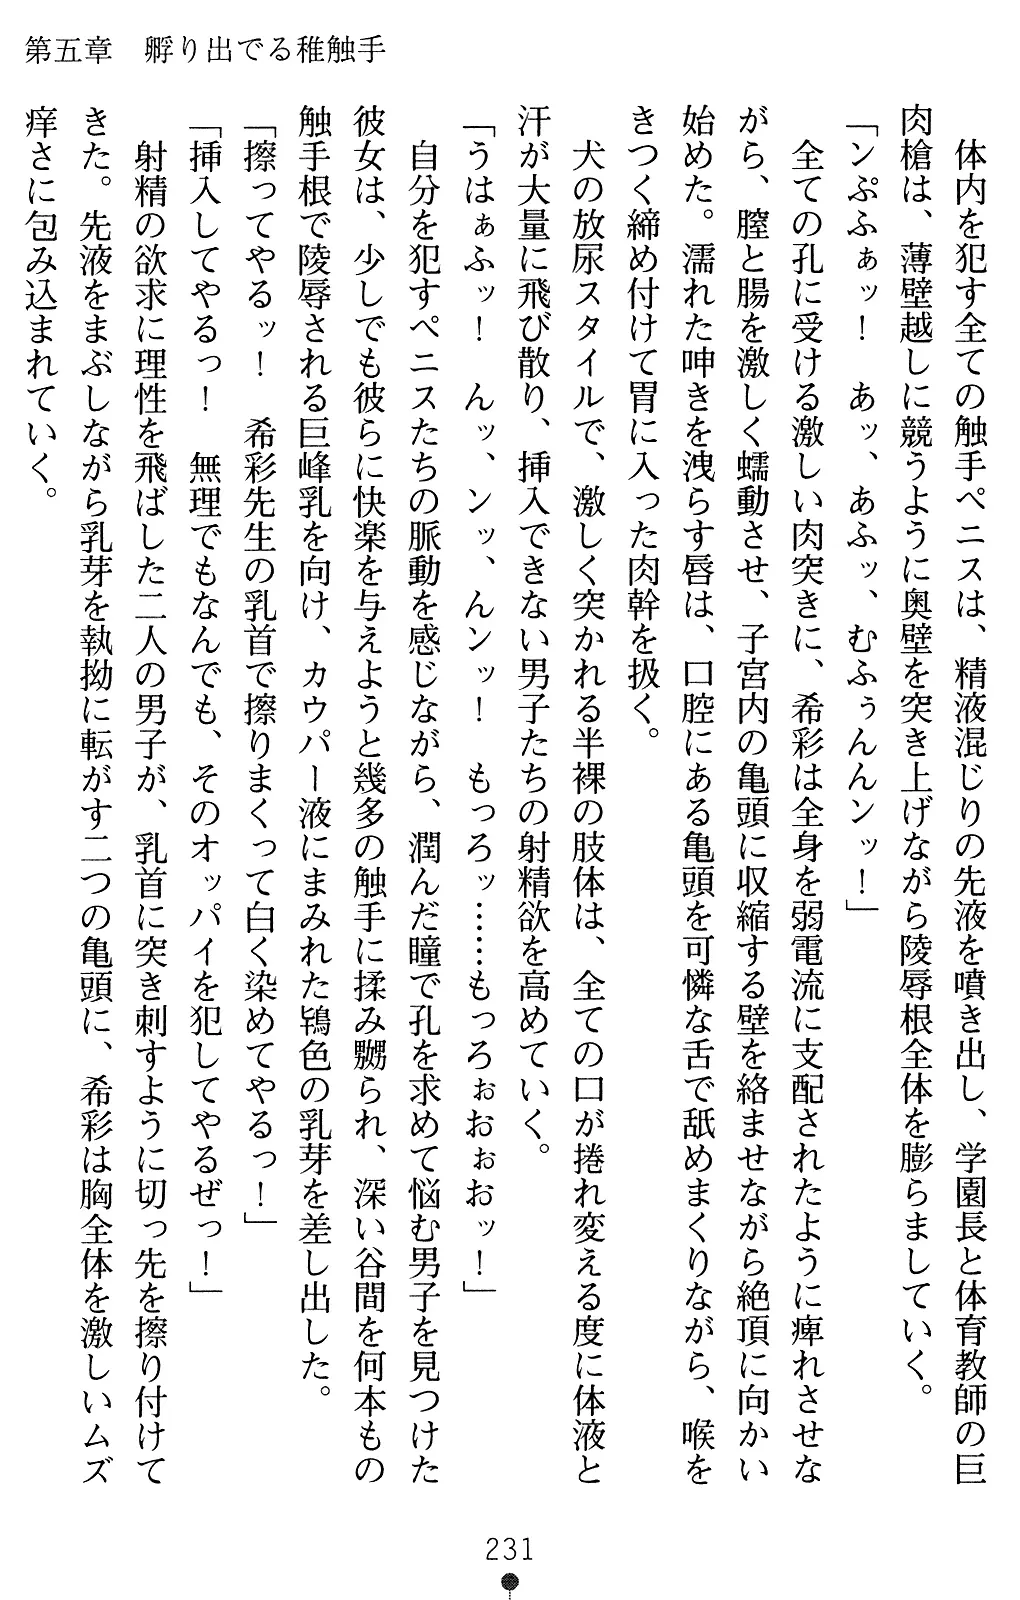 第五章　孵り出でる稚触手
　体内を犯す全ての触手ペニスは、精液混じりの先液を噴き出し、学園長と体育教師の巨
肉槍は、薄壁越しに競うように奥壁を突き上げながら陵辱根全体を膨らましていく。
「ンぷふぁッ！　あッ、あふッ、むふぅんんンッ！」
　全ての孔に受ける激しい肉突きに、希彩は全身を弱電流に支配されたように痺れさせな
がら、膣と腸を激しく蠕動させ、子宮内の亀頭に収縮する壁を絡ませながら絶頂に向かい
始めた。濡れた呻きを洩らす唇は、口腔にある亀頭を可憐な舌で舐めまくりながら、喉を
きつく締め付けて胃に入った肉幹を扱く。
　犬の放尿スタイルで、激しく突かれる半裸の肢体は、全ての口が捲れ変える度に体液と
汗が大量に飛び散り、挿入できない男子たちの射精欲を高めていく。
「うはぁふッ！　んッ、ンッ、んンッ！　もっろッ……もっろぉおぉおッ！」
　自分を犯すペニスたちの脈動を感じながら、潤んだ瞳で孔を求めて悩む男子を見つけた
彼女は、少しでも彼らに快楽を与えようと幾多の触手に揉み嬲られ、深い谷間を何本もの
触手根で陵辱される巨峰乳を向け、カウパー液にまみれた鴇色の乳芽を差し出した。
「擦ってやるッ！　希彩先生の乳首で擦りまくって白く染めてやるっ！」
「挿入してやるっ！　無理でもなんでも、そのオッパイを犯してやるぜっ！」
　射精の欲求に理性を飛ばした二人の男子が、乳首に突き刺すように切っ先を擦り付けて
きた。先液をまぶしながら乳芽を執拗に転がす二つの亀頭に、希彩は胸全体を激しいムズ
痒さに包み込まれていく。
231